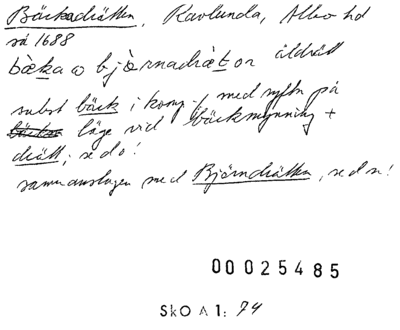 Bäckadrätten, Ravlunda, Albo hd
så 1688
bæka o bjòrnadrætor åldrätt
subst bäck i komp., med syftn på
läge vid bäckmynning +
drätt; se d o!
sammanslagen med Björndrätten, se d n!
00025485
SkO A 1: 74